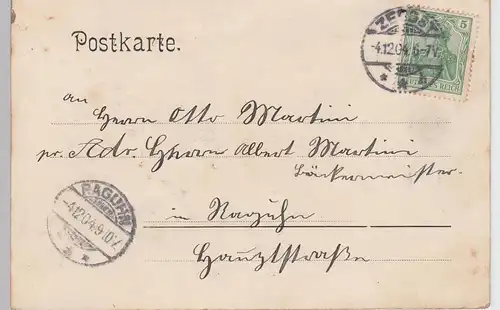 Postkarte.
5
REICH
4.12.04. 6-7V.
an
Herrn Otto Martini
pr. Adr. Herrn Albert Martini
Bäckermeister.
in Raguhn
Hauptstraße
RAGUHN
4.12.04. 9-10V.